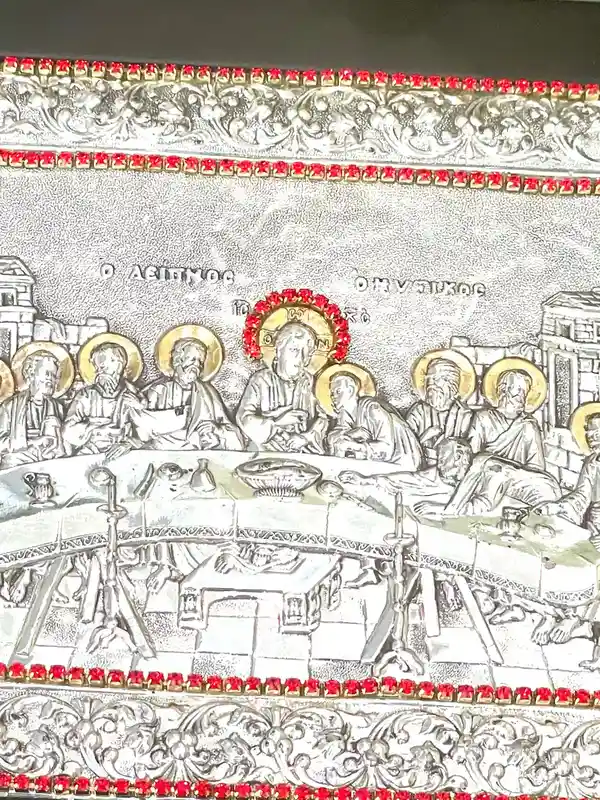 Ο ΔΕΙΠΝΟΣ Ο ΜΥΣΤΙΚΟΣ
ΙΣ ΧΣ
Ο Ω Ν